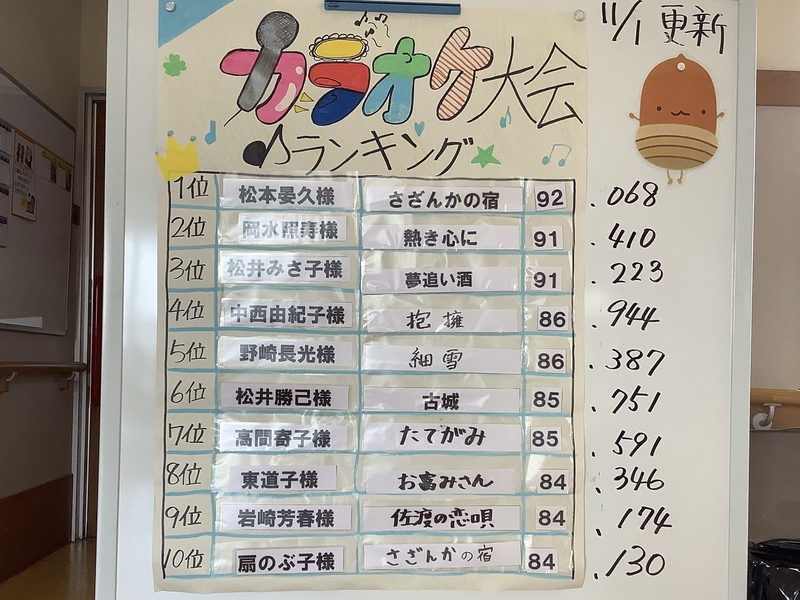 カラオケ大会
ランキング
11/1 更新
1位 松本晏久様 さざんかの宿 92 .068
2位 岡水照寿様 熱き心に 91 .410
3位 松井みさ子様 夢追い酒 91 .223
4位 中西由紀子様 抱擁 86 .944
5位 野崎長光様 細雪 86 .387
6位 松井勝己様 古城 85 .751
7位 高間寄子様 たてがみ 85 .591
8位 東道子様 お富みさん 84 .346
9位 岩崎芳春様 佐渡の恋唄 84 .174
10位 扇のぶ子様 さざんかの宿 84 .130